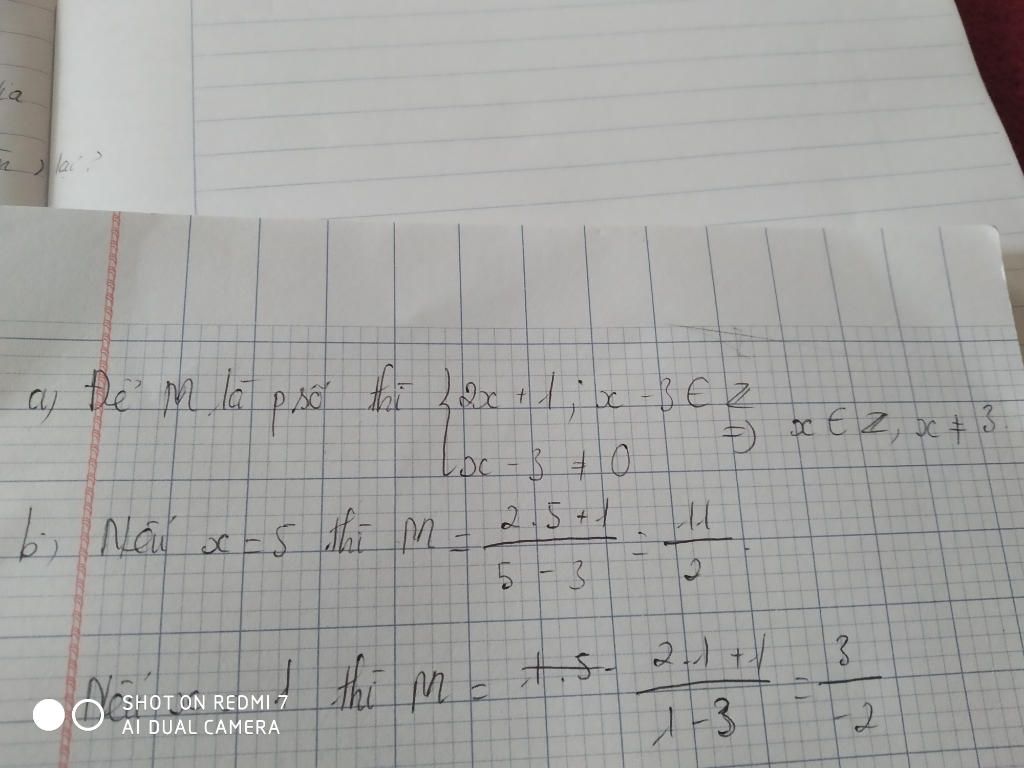 lại?
a) Để M là p số thì { 2x + 1 ; x - 3 ∈ Z
x - 3 ≠ 0
=> x ∈ Z, x ≠ 3
b) Nếu x = 5 thì M = (2.5 + 1)/(5 - 3) = 11/2.
Nếu 1 thì M = 1.5 (2.1 + 1)/(1 - 3) = 3/-2
SHOT ON REDMI 7
AI DUAL CAMERA